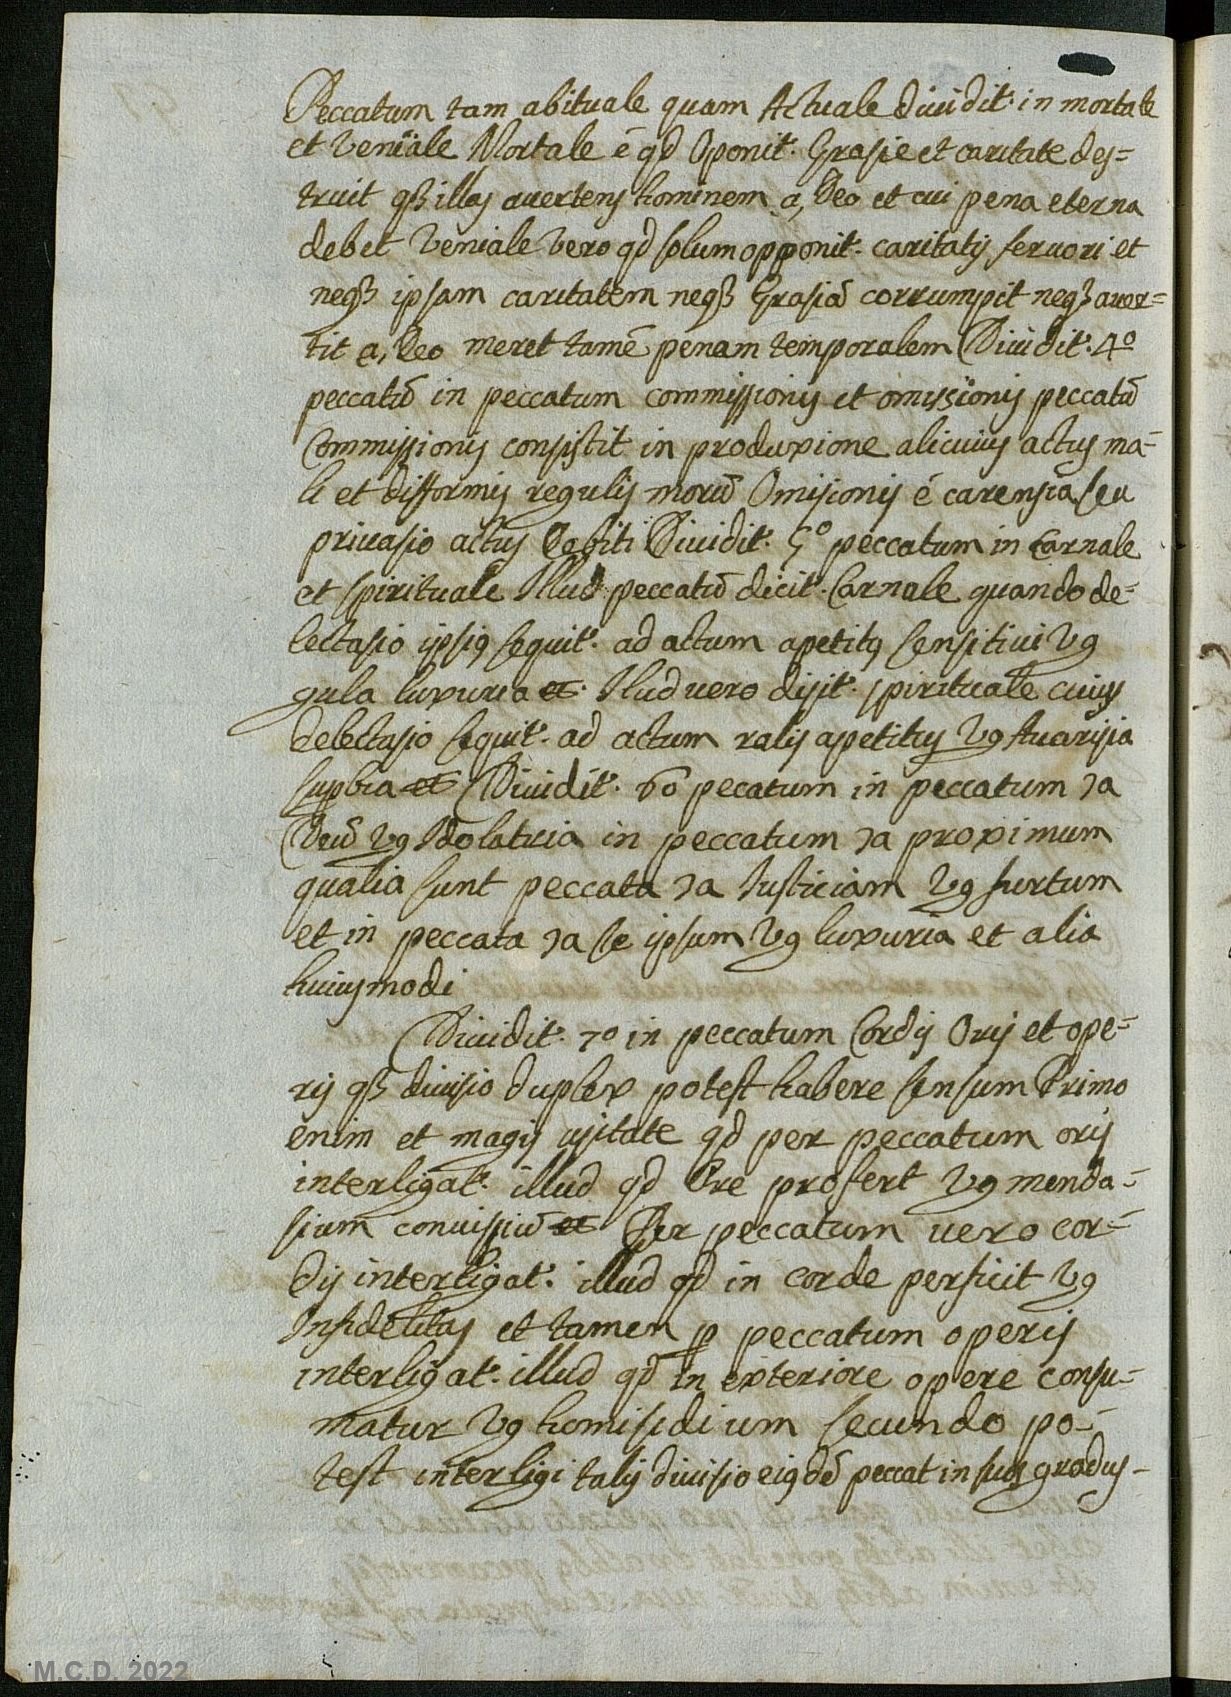 Peccatum tam abituale quam Actuale diuidit.r in mortale
et veniale Mortale ē qd Oponit.r Grasie et caritate des=
truit qȝ illas auertens hominem a, Deo et cui pena eterna
debet veniale vero qd solum opponit.r caritatis feruori et
neqȝ ipsam caritatem neqȝ Grasiā corrumpit neqȝ auer=
tit a, Deo meret tamē penam temporalem Diuidit.r 4º
peccatū in peccatum commissionis et omissionis peccatū
Commissionis consistit in produxione alicuius actus ma-
li et difformis regulis morū Omisionis ē carensia seu
priuasio actus Debiti Diuidit.r 5º peccatum in Carnale
et spirituale Illud peccatū dicit.r Carnale quando de-
lectasio ipsiꝰ sequit.r ad actum apetitꝰ sensitiui vg
gula luxuria et. Illud uero disit.r spirituale cuius
delectasio sequit.r ad actum ralis apetitus vg Auarisia
supbia et Diuidit.r 6o pecatum in peccatum ɔa
Deū vg Idolatria in peccatum ɔa proximum
qualia sunt peccata ɔa Iusticiam vg furtum
et in peccata ɔa se ipsum vg luxuria et alia
huiusmodi
Diuidit.r 7o in peccatum Cordis Oris et ope-
ris qȝ diuisio duplex potest habere sensum Primo
enim et magis usitate qd per peccatum oris
interligat.r illud qd Ore profert vg menda-
sium conuissiū et Per peccatum uero cor-
dis interligat.r illud qd in corde perficit vg
Infidelitas et tamen p peccatum operis
interligat.r illud qd in exteriore opere consu-
matur vg homisidium secundo po-
test interligi talis diuisio eiꝰdē peccat in suos gradus-
M.C.D. 2022